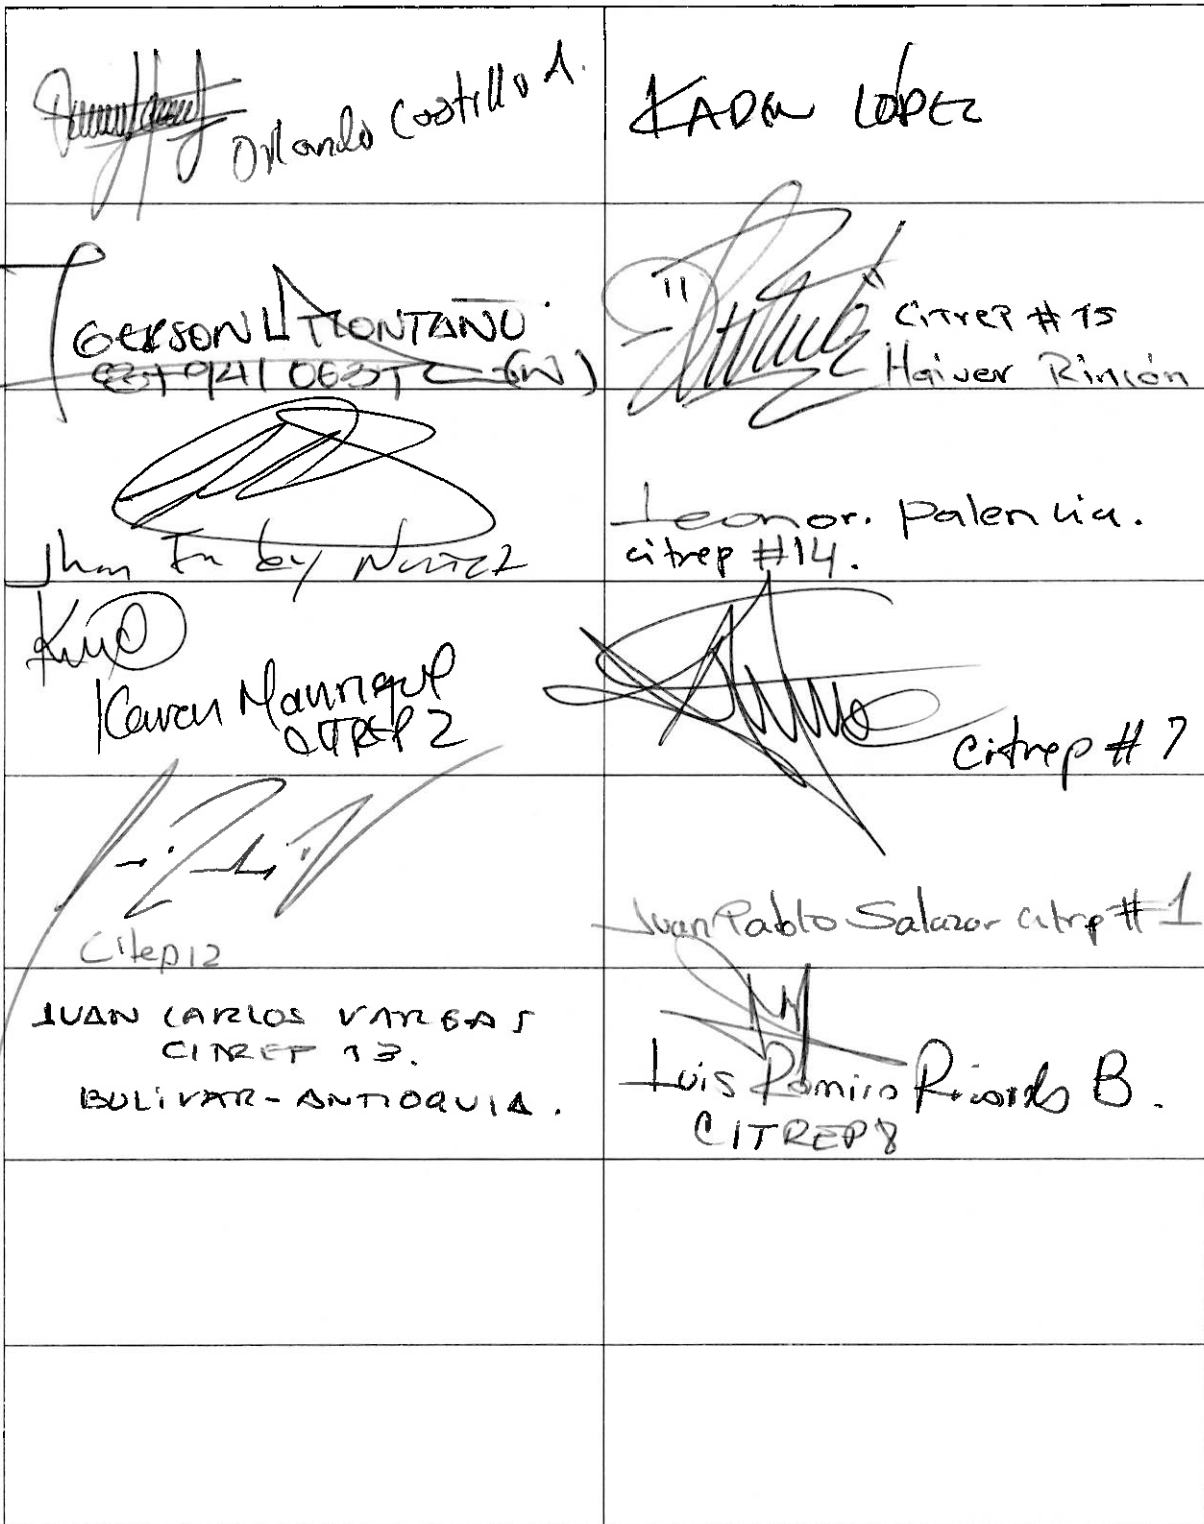 Orlando Castillo A.
KAREN LÓPEZ
GERSON L MONTAÑO
Citrep # 15
Haiver Rincón
Leonor. Palencia.
citrep #14.
Jhon Fredy Nuñez
Karen Manrique
CITREP 2
Citrep # 7
Citrep 12
Juan Pablo Salazar citrep # 1
JUAN CARLOS VARGAS
CITREP 13.
BOLÍVAR - ANTIOQUIA.
Luis Ramiro Ricardo B.
CITREP 8